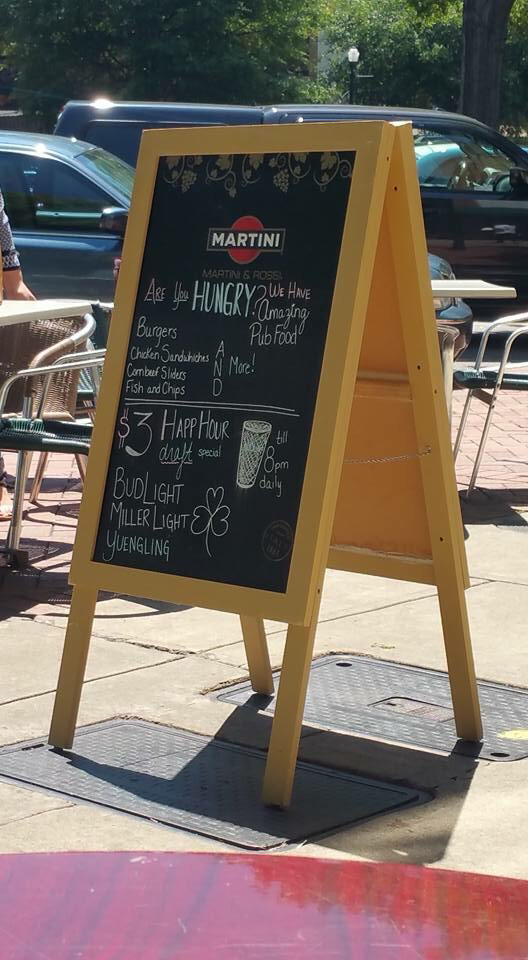 MARTINI
MARTINI & ROSSI.
ARE YOU HUNGRY? WE HAVE
Amazing
Pub Food
Burgers
Chicken Sandwhiches
Corn beef Sliders
Fish and Chips
AND
More!
$3 HAPP HOUR
draft special
till
8pm
daily
BUD LIGHT
MILLER LIGHT
YUENGLING